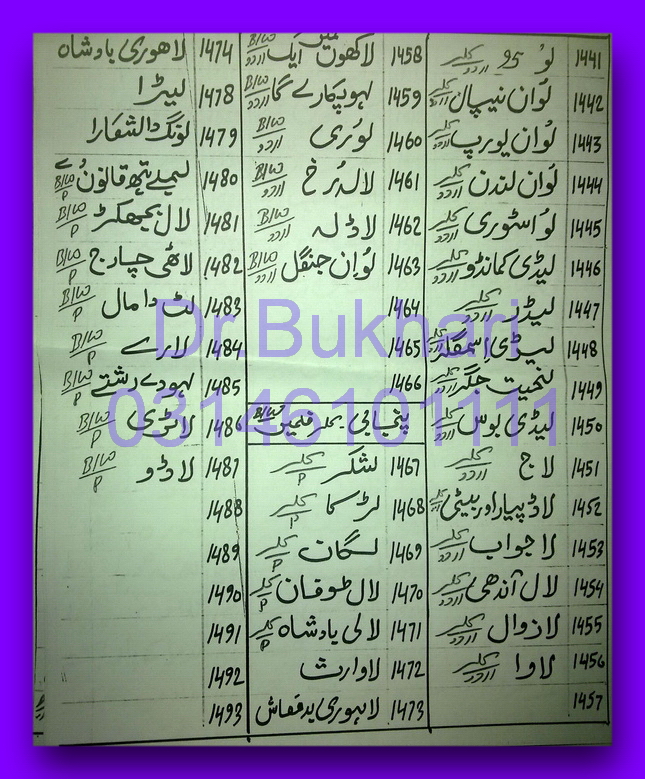 1441 لَو 95 کلر اردو
1442 لَو ان نیپال کلر اردو
1443 لَو ان یورپ کلر اردو
1444 لَو ان لندن کلر اردو
1445 لَو اسٹوری کلر اردو
1446 لیڈی کمانڈو کلر اردو
1447 لیڈر کلر اردو
1448 لیڈی اسمگلر کلر اردو
1449 جگر کلر اردو
1450 لیڈی بوس کلر اردو
1451 لاج کلر اردو
1452 لاڈ پیار اور بیٹی
1453 لاجواب کلر اردو
1454 لال آندھی کلر اردو
1455 لازوال کلر اردو
1456 لاوا کلر اردو
1457
1458 لاکھوں میں ایک B/W اردو
1459 لہو پکارے گا B/W اردو
1460 لوری B/W اردو
1461 لالہ رخ B/W اردو
1462 لاڈلہ B/W اردو
1463 لَو ان جنگل B/W اردو
1464
1465
1466
پنجابی کلر فلمیں B/W
1467 لشکر کلر P
1468 لڑکا کلر P
1469 لگان کلر P
1470 لال طوفان کلر P
1471 لالی بادشاہ کلر P
1472 لاوارث
1473 لاہوری بدمعاش
1474 لاھوری بادشاہ
1478 لیٹرا
1479 لونگ دا لشکارا
1480 لمبے ہتھ قانون دے B/W P
1481 لال بجھکڑ B/W P
1482 لاٹھی چارج B/W P
1483 لٹ دا مال B/W P
1484 لارے B/W P
1485 لہو دے رشتے B/W P
1486 لاٹری B/W P
1487 لاڈو B/W P
1488
1489
1490
1491
1492
1493
Dr.Bukhari
03146101111